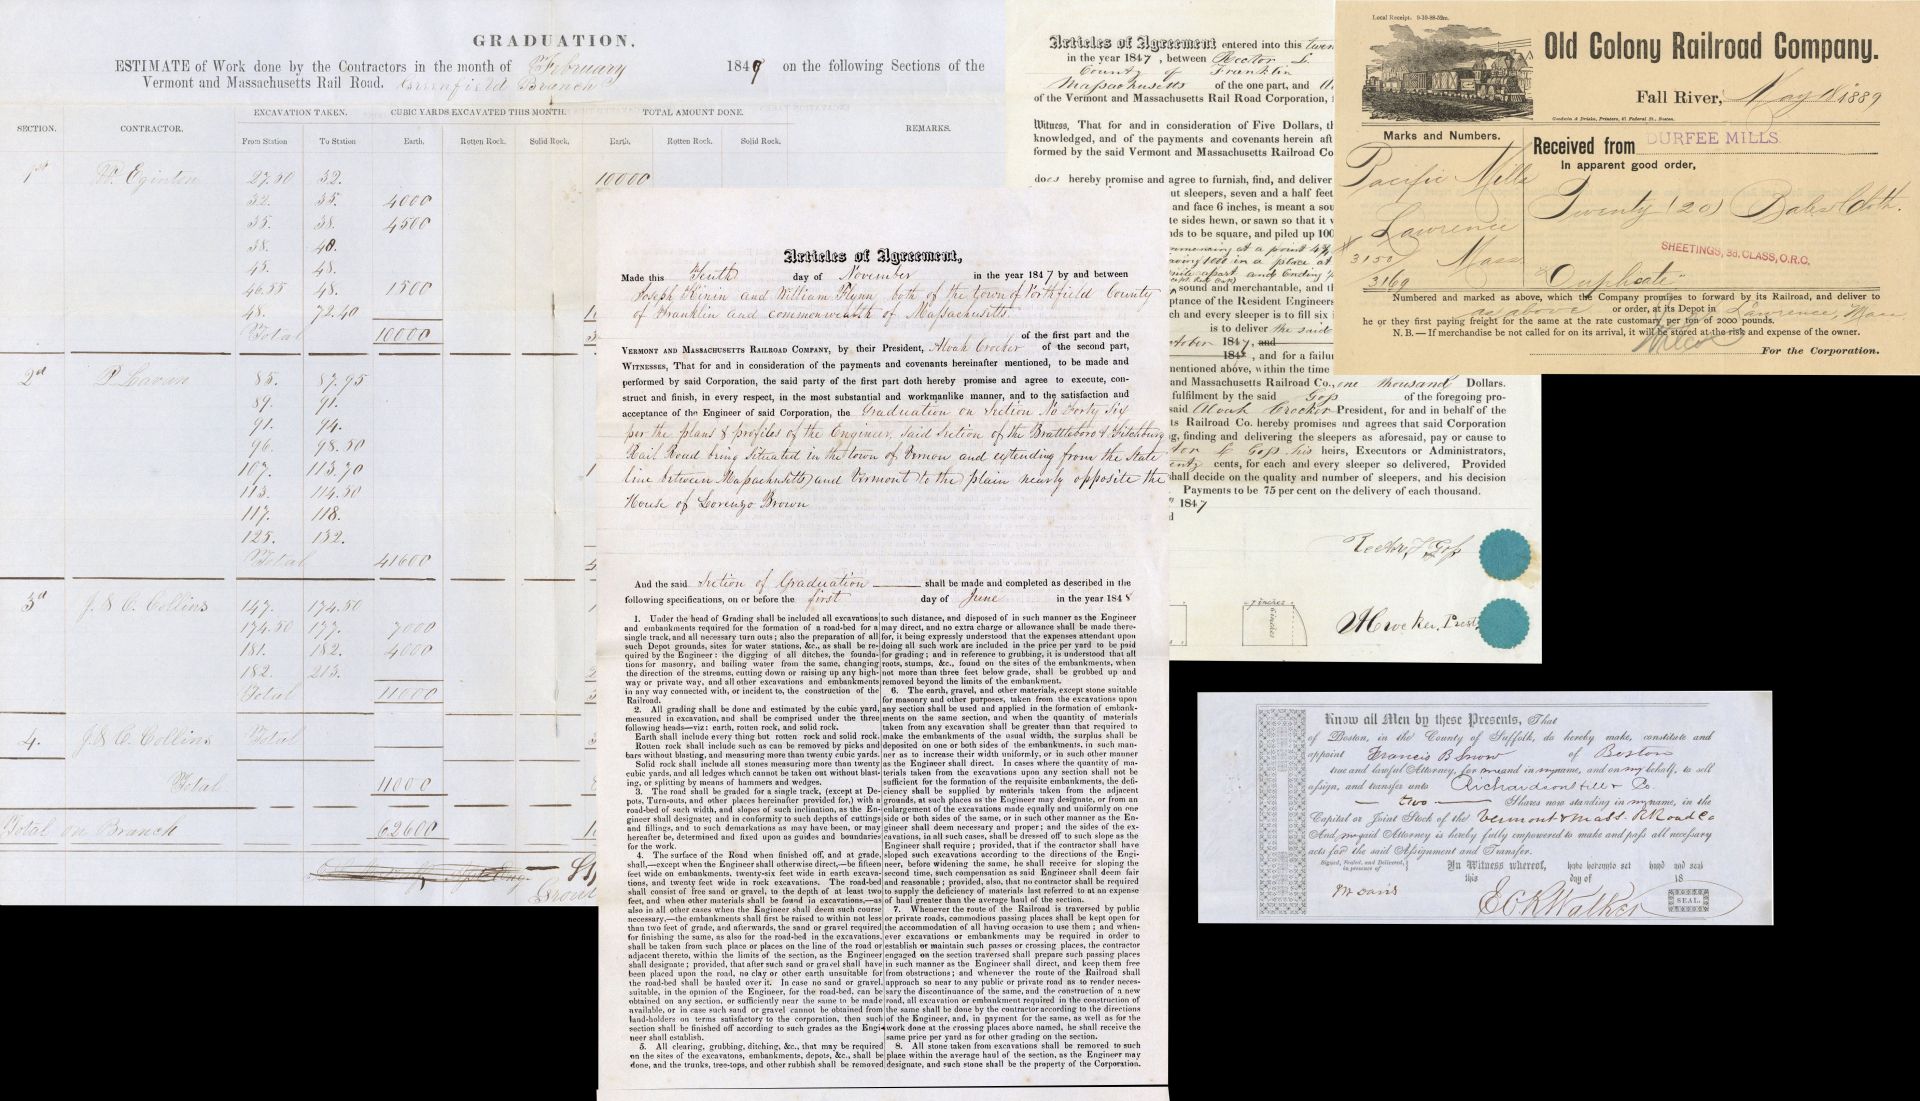 GRADUATION.
ESTIMATE of Work done by the Contractors in the month of February 1849 on the following Sections of the
Vermont and Massachusetts Rail Road. Greenfield Branch
EXCAVATION TAKEN. CUBIC YARDS EXCAVATED THIS MONTH. TOTAL AMOUNT DONE.
SECTION. CONTRACTOR. REMARKS.
From Station To Station Earth. Rotten Rock. Solid Rock. Earth. Rotten Rock. Solid Rock.
1st W. Eginton 27.50 32. 10000
32. 35. 4000
35. 38. 4500
38. 40.
45. 48.
46.55 48. 1500
48. 72.40
Total 10000
2d P. Lavan 85. 87.95
89. 91.
91. 94.
96. 98.50
107. 113.70
113. 114.50
117. 118.
125. 132.
Total 41600
3d J. & C. Collins 147. 174.50
174.50 177. 7000
181. 182. 4000
182. 213.
Total 11000
4. J. & C. Collins Total
Total 11000
Total on Branch 62600
Articles of Agreement,
Made this Tenth day of November in the year 1847 by and between
Joseph Kinin and William Flynn both of the town of Northfield County
of Franklin and commonwealth of Massachusetts.
of the first part and the
VERMONT AND MASSACHUSETTS RAILROAD COMPANY, by their President, Alvah Crocker of the second part,
WITNESSES, That for and in consideration of the payments and covenants hereinafter mentioned, to be made and
performed by said Corporation, the said party of the first part doth hereby promise and agree to execute, con-
struct and finish, in every respect, in the most substantial and workmanlike manner, and to the satisfaction and
acceptance of the Engineer of said Corporation, the Graduation on Section No Forty Six
per the plans & profiles of the Engineer, said Section of the Brattleboro & Fitchburg
Rail Road being situated in the town of Vernon and extending from the State
line between Massachusetts and Vermont to the plain nearly opposite the
House of Lorenzo Brown
And the said Section of Graduation shall be made and completed as described in the
following specifications, on or before the first day of June in the year 1848
1. Under the head of Grading shall be included all excavations
and embankments required for the formation of a road-bed for a
single track, and all necessary turn outs; also the preparation of all
such Depot grounds, sites for water stations, &c., as shall be re-
quired by the Engineer: the digging of all ditches, the founda-
tions for masonry, and bailing water from the same, changing
the direction of the streams, cutting down or raising up any high-
way or private way, and all other excavations and embankments
in any way connected with, or incident to, the construction of the
Railroad.
2. All grading shall be done and estimated by the cubic yard,
measured in excavation, and shall be comprised under the three
following heads—viz: earth, rotten rock, and solid rock.
Earth shall include every thing but rotten rock and solid rock.
Rotten rock shall include such as can be removed by picks and
bars without blasting, and measuring more than twenty cubic yards.
Solid rock shall include all stones measuring more than twenty
cubic yards, and all ledges which cannot be taken out without blast-
ing, or splitting by means of hammers and wedges.
3. The road shall be graded for a single track, (except at De-
pots, Turn-outs, and other places hereinafter provided for,) with a
road-bed of such width, and slopes of such inclination, as the En-
gineer shall designate; and in conformity to such depths of cuttings
and fillings, and to such demarkations as may have been, or may
hereafter be, determined and fixed upon as guides and boundaries
for the work.
4. The surface of the Road when finished off, and at grade,
shall,—except when the Engineer shall otherwise direct,—be fifteen
feet wide on embankments, twenty-six feet wide in earth excava-
tions, and twenty feet wide in rock excavations. The road-bed
shall consist of free sand or gravel, to the depth of at least two
feet, and when other materials shall be found in excavations,—as
also in all other cases when the Engineer shall deem such course
necessary,—the embankments shall first be raised to within not less
than two feet of grade, and afterwards, the sand or gravel required
for finishing the same, as also for the road-bed in the excavations,
shall be taken from such place or places on the line of the road or
adjacent thereto, within the limits of the section, as the Engineer
shall designate; provided, that after such sand or gravel shall have
been placed upon the road, no clay or other earth unsuitable for
the road-bed shall be hauled over it. In case no sand or gravel,
suitable, in the opinion of the Engineer, for the road-bed, can be
obtained on any section, or sufficiently near the same to be made
available, or in case such sand or gravel cannot be obtained from
land-holders on terms satisfactory to the corporation, then such
section shall be finished off according to such grades as the Engi-
neer shall establish.
5. All clearing, grubbing, ditching, &c., that may be required
on the sites of the excavatons, embankments, depots, &c., shall be
done, and the trunks, tree-tops, and other rubbish shall be removed
to such distance, and disposed of in such manner as the Engineer
may direct, and no extra charge or allowance shall be made there-
for, it being expressly understood that the expenses attendant upon
doing all such work are included in the price per yard to be paid
for grading; and in reference to grubbing, it is understood that all
roots, stumps, &c., found on the sites of the embankments, when
not more than three feet below grade, shall be grubbed up and
removed beyond the limits of the embankment.
6. The earth, gravel, and other materials, except stone suitable
for masonry and other purposes, taken from the excavations upon
any section shall be used and applied in the formation of embank-
ments on the same section, and when the quantity of materials
taken from any excavation shall be greater than that required to
make the embankments of the usual width, the surplus shall be
deposited on one or both sides of the embankments, in such man-
ner as to increase their width uniformly, or in such other manner
as the Engineer shall direct. In cases where the quantity of ma-
terials taken from the excavations upon any section shall not be
sufficient for the formation of the requisite embankments, the defi-
ciency shall be supplied by materials taken from the adjacent
grounds, at such places as the Engineer may designate, or from an
enlargement of the excavations made equally and uniformly on one
side or both sides of the same, or in such other manner as the En-
gineer shall deem necessary and proper; and the sides of the ex-
cavations, in all such cases, shall be dressed off to such slope as the
Engineer shall require; provided, that if the contractor shall have
sloped such excavations according to the directions of the Engi-
neer, before widening the same, he shall receive for sloping the
second time, such compensation as said Engineer shall deem fair
and reasonable; provided, also, that no contractor shall be required
to supply the deficiency of materials last referred to at an expense
of haul greater than the average haul of the section.
7. Whenever the route of the Railroad is traversed by public
or private roads, commodious passing places shall be kept open for
the accommodation of all having occasion to use them; and when-
ever excavations or embankments may be required in order to
establish or maintain such passes or crossing places, the contractor
engaged on the section traversed shall prepare such passing places
in such manner as the Engineer shall direct, and keep them free
from obstructions; and whenever the route of the Railroad shall
approach so near to any public or private road as to render neces-
sary the discontinuance of the same, and the construction of a new
road, all excavation or embankment required in the construction of
the same shall be done by the contractor according to the directions
of the Engineer, and, in payment for the same, as well as for the
work done at the crossing places above named, he shall receive the
same price per yard as for other grading on the section.
8. All stone taken from excavations shall be removed to such
place within the average haul of the section, as the Engineer may
designate, and such stone shall be the property of the Corporation.
Articles of Agreement entered into this twen
in the year 1847, between Rector L.
County of Franklin
Massachusetts of the one part, and
of the Vermont and Massachusetts Rail Road Corporation,
Witness, That for and in consideration of Five Dollars, th
knowledged, and of the payments and covenants herein aft
formed by the said Vermont and Massachusetts Railroad Co
does hereby promise and agree to furnish, find, and deliver
ut sleepers, seven and a half feet
and face 6 inches, is meant a sou
te sides hewn, or sawn so that it w
nds to be square, and piled up 100
mmencing at a point
sound and merchantable, and th
ptance of the Resident Engineers
ch and every sleeper to fill six i
is to deliver the said
October 1847, and
184 , and for a failur
mentioned above, within the time
and Massachusetts Railroad Co., one thousand Dollars.
fulfilment by the said Goss of the foregoing pro-
said Alvah Crocker President, for and in behalf of the
ts Railroad Co. hereby promises and agrees that said Corporation
g, finding and delivering the sleepers as aforesaid, pay or cause to
tor L Goss his heirs, Executors or Administrators,
enty cents, for each and every sleeper so delivered, Provided
shall decide on the quality and number of sleepers, and his decision
Payments to be 75 per cent on the delivery of each thousand.
1847
Rector L Goss
7 inches
6 inches
A Crocker, Prest
Local Receipt. 9-10-88-50m.
Old Colony Railroad Company.
Fall River, May 18 1889
Goodwin & Drisko, Printers, 41 Federal St., Boston.
Marks and Numbers.
Received from DURFEE MILLS.
In apparent good order,
Pacific Mills
Lawrence
Mass.
# 3150
3169
Twenty (20) Bales Cloth.
SHEETINGS, 3d, CLASS, O.R.C.
"Duplicate"
Numbered and marked as above, which the Company promises to forward by its Railroad, and deliver to
as above or order, at its Depot in Lawrence, Mass
he or they first paying freight for the same at the rate customary per ton of 2000 pounds.
N.B.—If merchandise be not called for on its arrival, it will be stored at the risk and expense of the owner.
Wilcox For the Corporation.
Know all Men by these Presents, That
of Boston, in the County of Suffolk, do hereby make, constitute and
appoint Francis B Snow of Boston
true and lawful Attorney, for me and in my name, and on my behalf, to sell
assign, and transfer unto Richardson Hill & Co.
two Shares now standing in my name, in the
Capital or Joint Stock of the Vermont & Mass. R Road Co
And my said Attorney is hereby fully empowered to make and pass all necessary
acts for the said Assignment and Transfer.
Signed, Sealed, and Delivered, in presence of
In Witness whereof, have hereunto set hand and seal
this day of 18
M Davis
E C R Walker
SEAL.